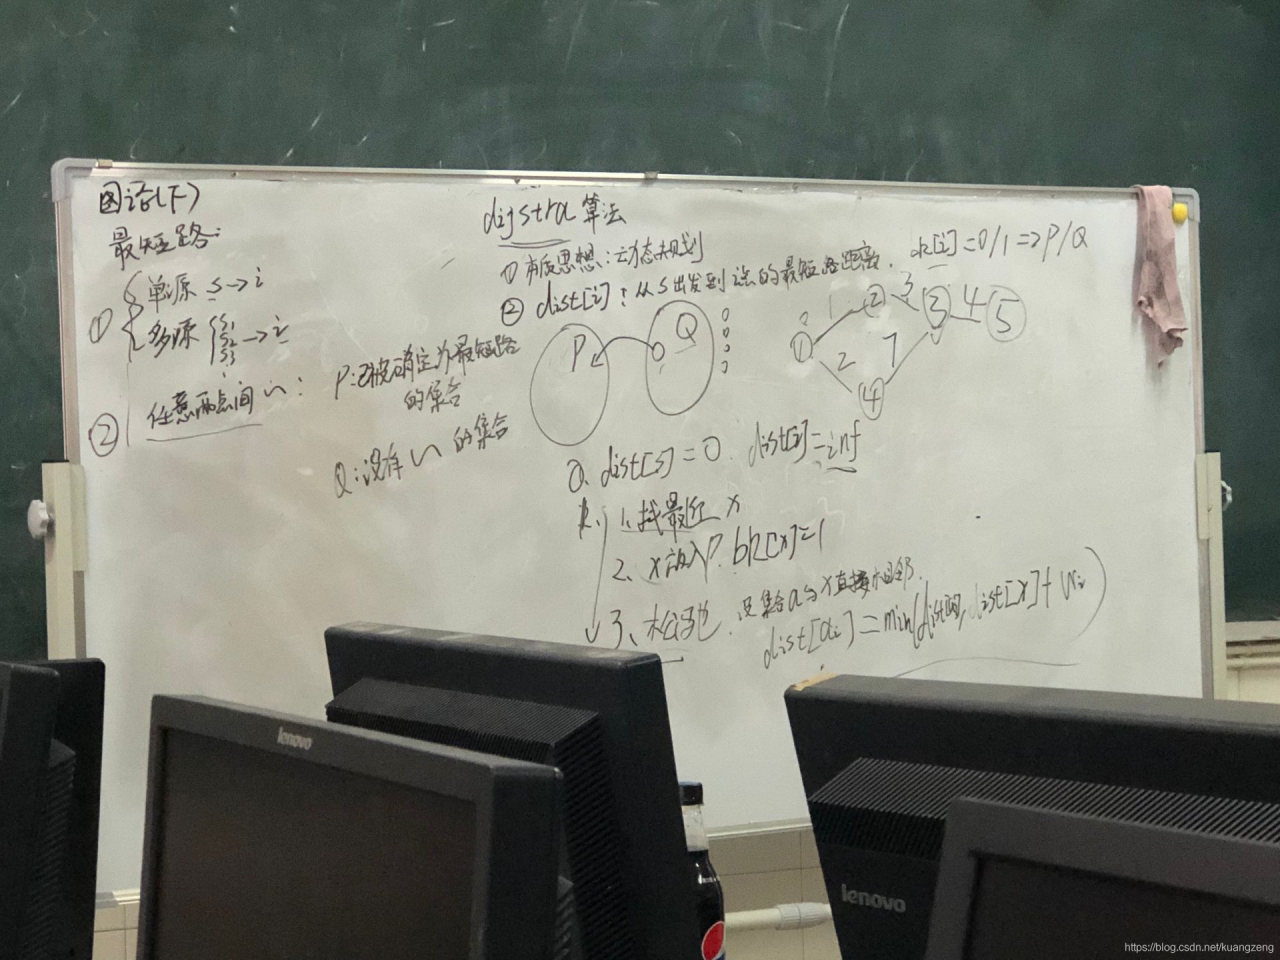 图论(下)
最短路:
① 单源 s→i
多源 s1 s2 s3 →i
② 任意两点间 〃:
dijstra 算法
① 本质思想:动态规划
② dist[i]:从s出发到i点的最短路距离. bk[i]=0/1=>P/Q
P:已被确定为最短路
的集合
Q:没有 〃 的集合
P
Q
1 2 3 3 4 5
1 2 7
4
0. dist[s]=0. dist[i]=inf
k. 1.找最近 x
2. x放入P. bk[x]=1
3. 松弛. 设集合a与x直接相邻.
dist[ai]=min(dist[ai], dist[x]+wi)
lenovo
lenovo
https://blog.csdn.net/kuangzeng